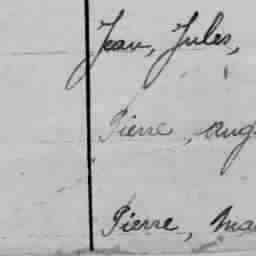 Jean, Jules,
Pierre, Aug
Pierre, Ma